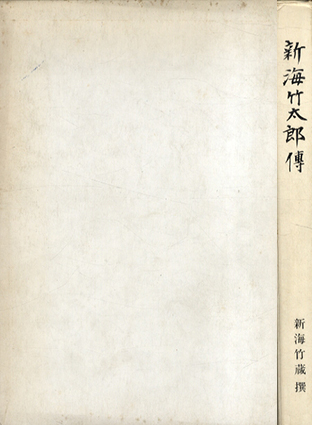 新海竹太郎傳
新海竹蔵 撰